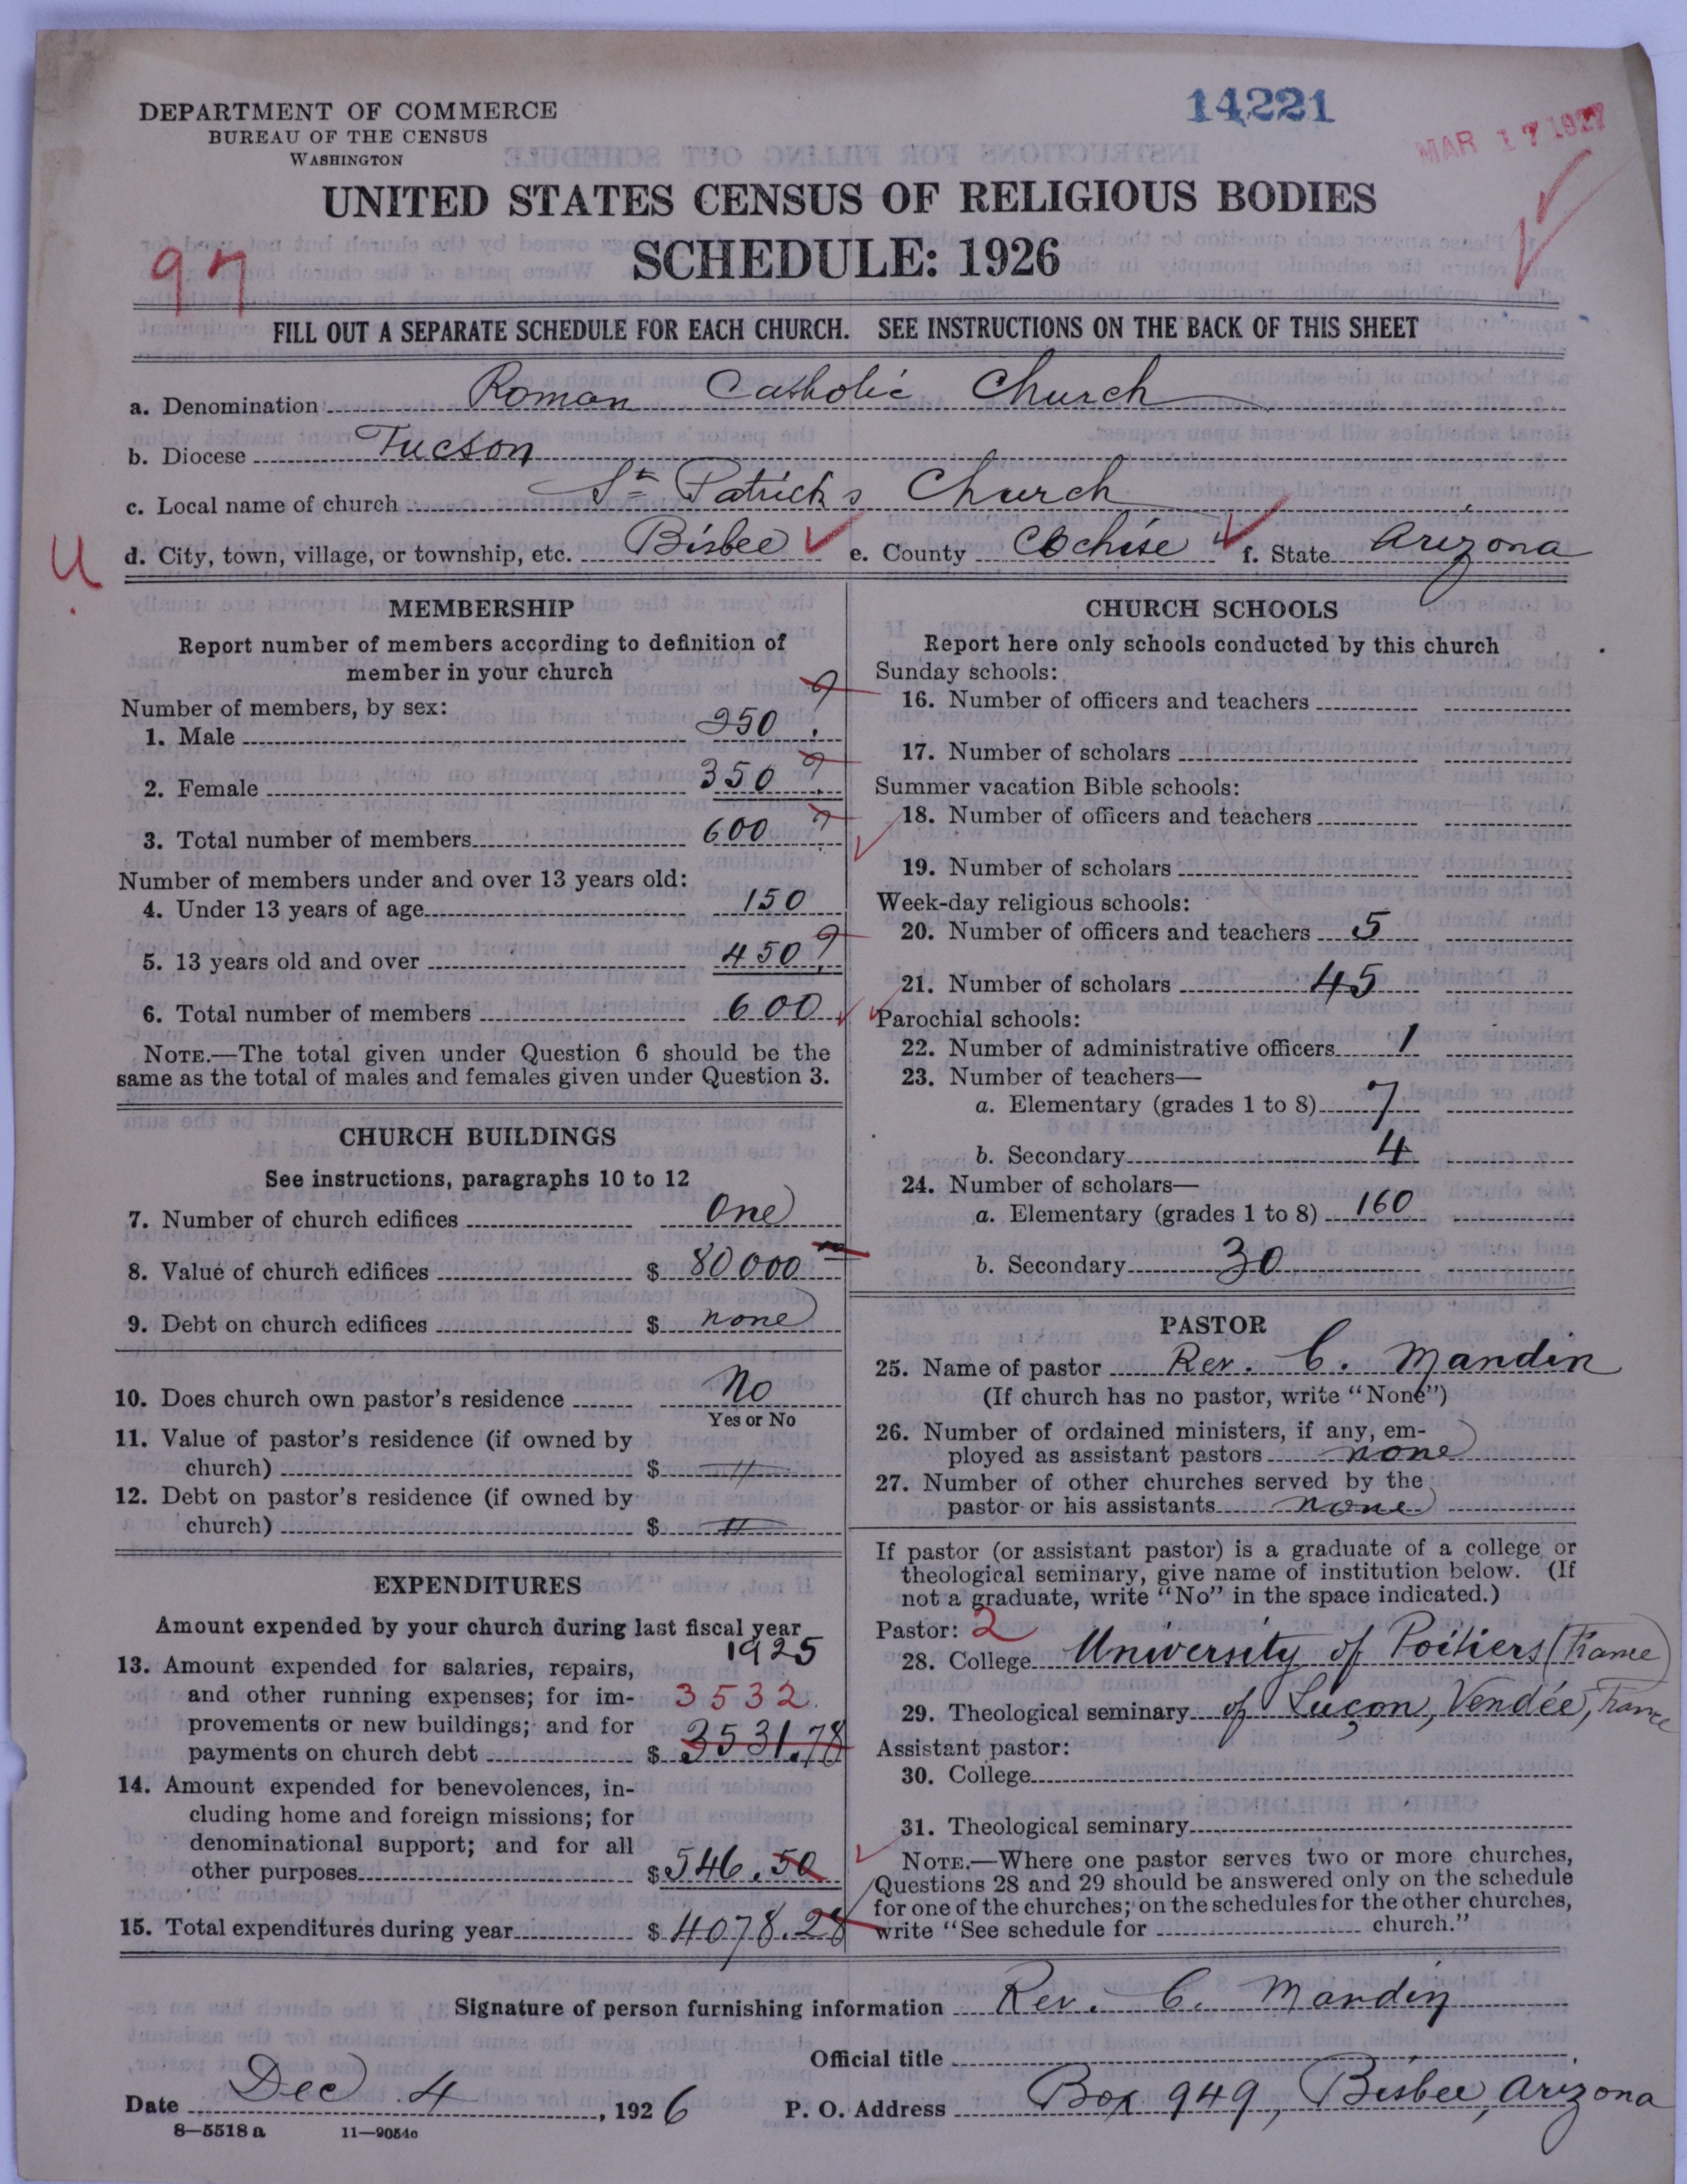 DEPARTMENT OF COMMERCE
BUREAU OF THE CENSUS
WASHINGTON
14221
MAR 17 1927
UNITED STATES CENSUS OF RELIGIOUS BODIES
SCHEDULE: 1926
97
FILL OUT A SEPARATE SCHEDULE FOR EACH CHURCH. SEE INSTRUCTIONS ON THE BACK OF THIS SHEET
a. Denomination Roman Catholic Church
b. Diocese Tucson
c. Local name of church St Patrick's Church
d. City, town, village, or township, etc. Bisbee e. County Cochise f. State Arizona
U
MEMBERSHIP
Report number of members according to definition of
member in your church
Number of members, by sex:
1. Male 250
2. Female 350
3. Total number of members 600
Number of members under and over 13 years old:
4. Under 13 years of age 150
5. 13 years old and over 450
6. Total number of members 600
NOTE.—The total given under Question 6 should be the
same as the total of males and females given under Question 3.
CHURCH BUILDINGS
See instructions, paragraphs 10 to 12
7. Number of church edifices One
8. Value of church edifices $ 80000
9. Debt on church edifices $ none
10. Does church own pastor's residence No
Yes or No
11. Value of pastor's residence (if owned by
church) $ "
12. Debt on pastor's residence (if owned by
church) $ "
EXPENDITURES
Amount expended by your church during last fiscal year
1925
13. Amount expended for salaries, repairs,
and other running expenses; for im- 3532
provements or new buildings; and for
payments on church debt $ 3531.78
14. Amount expended for benevolences, in-
cluding home and foreign missions; for
denominational support; and for all
other purposes $ 546.50
15. Total expenditures during year $ 4078.28
CHURCH SCHOOLS
Report here only schools conducted by this church
Sunday schools:
16. Number of officers and teachers
17. Number of scholars
Summer vacation Bible schools:
18. Number of officers and teachers
19. Number of scholars
Week-day religious schools:
20. Number of officers and teachers 5
21. Number of scholars 45
Parochial schools:
22. Number of administrative officers 1
23. Number of teachers—
a. Elementary (grades 1 to 8) 7
b. Secondary 4
24. Number of scholars—
a. Elementary (grades 1 to 8) 160
b. Secondary 30
PASTOR
25. Name of pastor Rev. C. Mandin
(If church has no pastor, write "None")
26. Number of ordained ministers, if any, em-
ployed as assistant pastors none
27. Number of other churches served by the
pastor or his assistants none
If pastor (or assistant pastor) is a graduate of a college or
theological seminary, give name of institution below. (If
not a graduate, write "No" in the space indicated.)
Pastor: 2
28. College University of Poitiers (France)
29. Theological seminary of Luçon, Vendée, France
Assistant pastor:
30. College
31. Theological seminary
NOTE.—Where one pastor serves two or more churches,
Questions 28 and 29 should be answered only on the schedule
for one of the churches; on the schedules for the other churches,
write "See schedule for church."
Signature of person furnishing information Rev. C. Mandin
Official title
Date Dec 4, 1926 P. O. Address Box 949, Bisbee, Arizona
8—5518 a 11—9054c